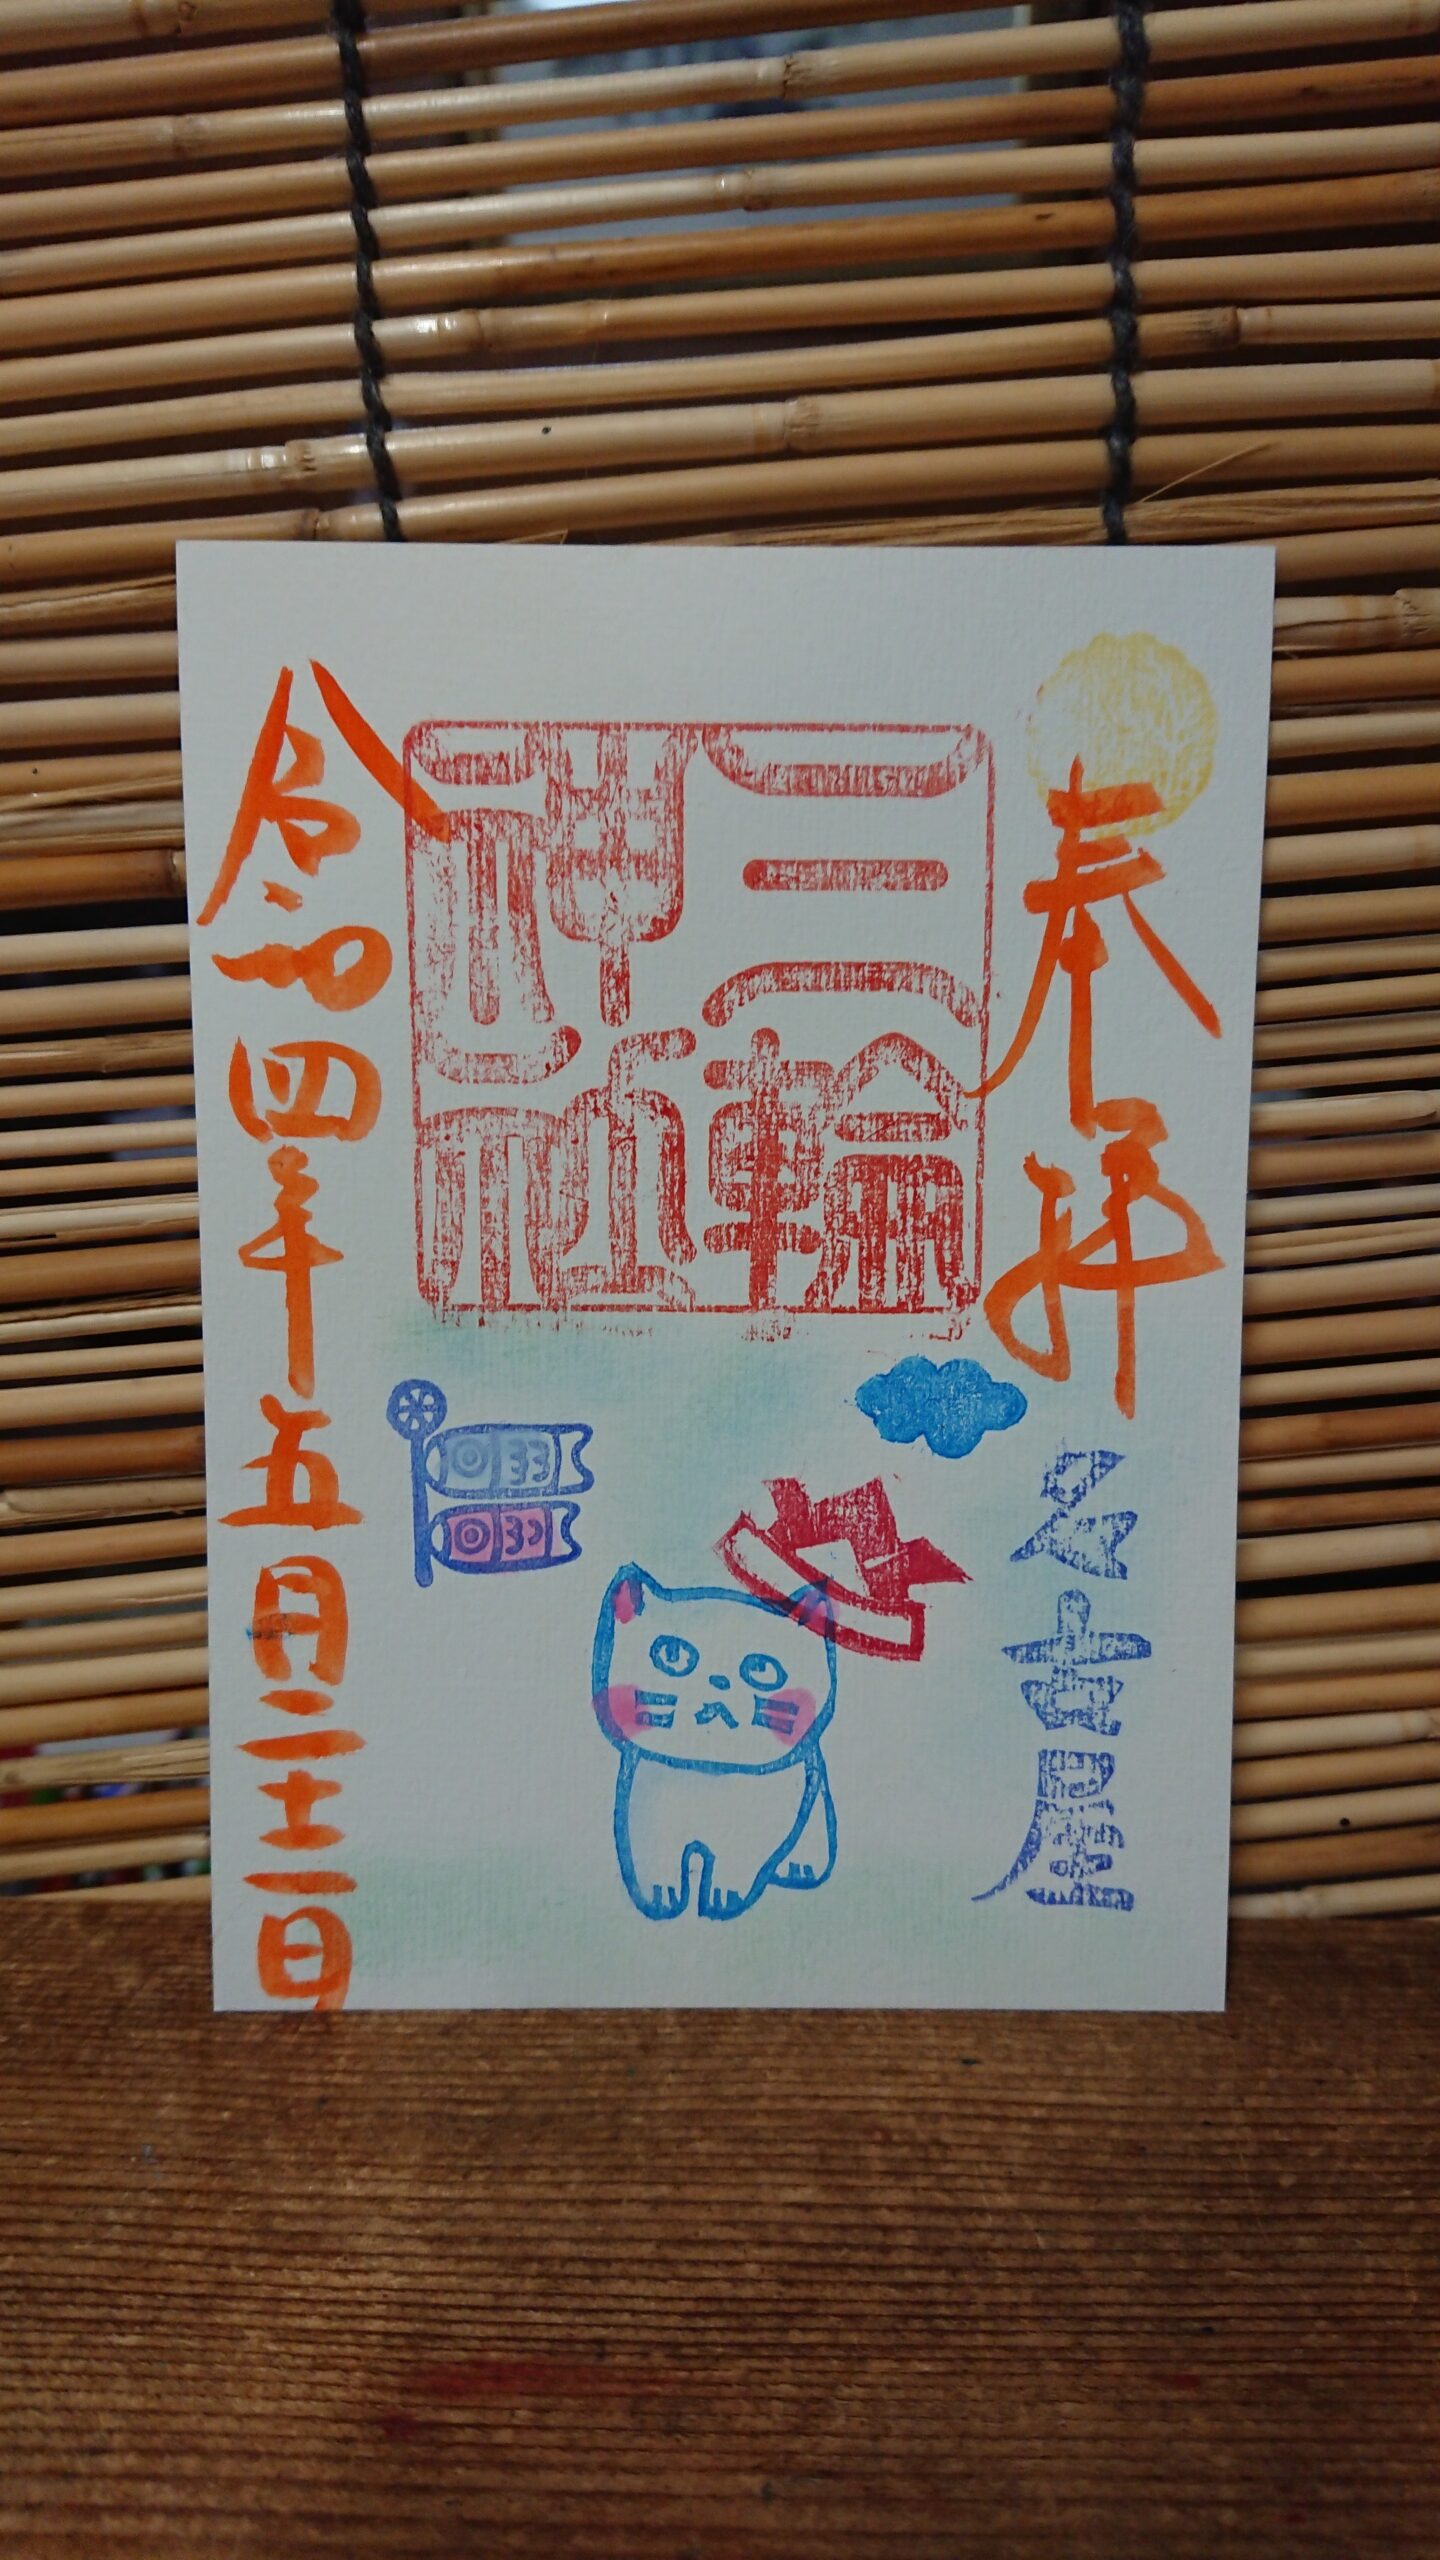 奉拝
名古屋
三輪
神社
令和四年五月二十一日